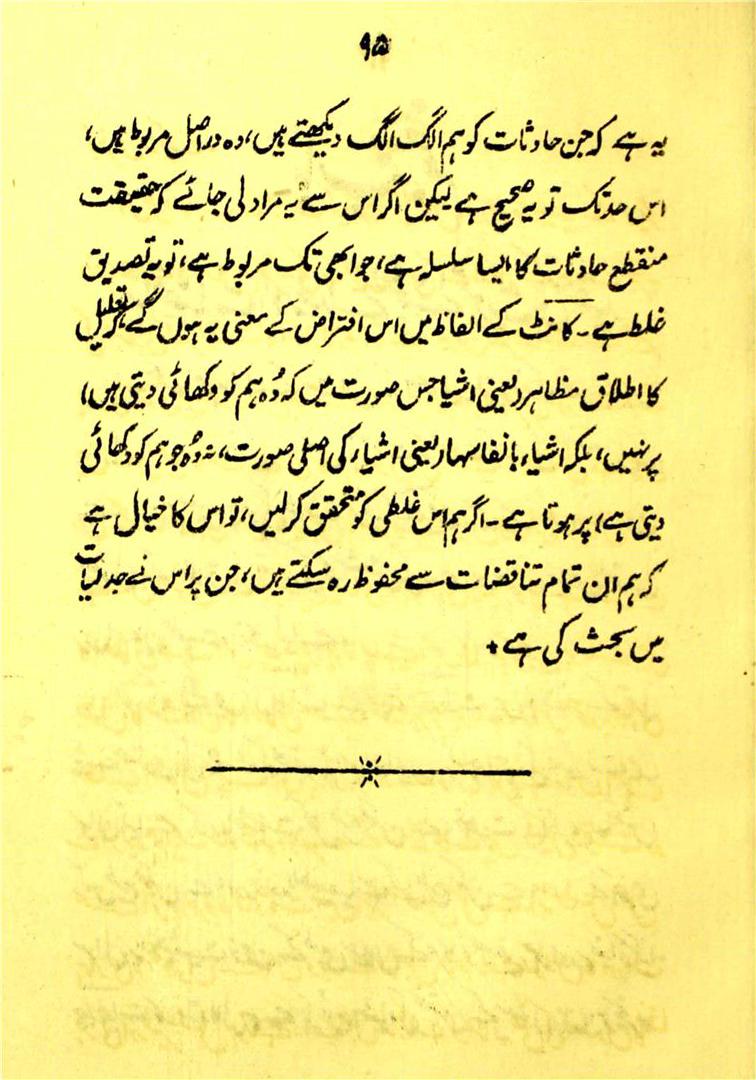 ۹۵
یہ ہے کہ جن حادثات کو ہم الگ الگ دیکھتے ہیں، وہ دراصل مربوط ہیں،
اس حد تک تو یہ صحیح ہے لیکن اگر اس سے یہ مراد لی جائے کہ حقیقت
منقطع حادثات کا ایسا سلسلہ ہے، جو ابھی تک مربوط ہے، تو یہ تصدیق
غلط ہے۔ کانٹ کے الفاظ میں اس افتراض کے معنی یہ ہوں گے کہ تعلیل
کا اطلاق مظاہر (یعنی اشیا جس صورت میں کہ وُہ ہم کو دکھائی دیتی ہیں)
پر نہیں، بلکہ اشیاء بانفاسہا (یعنی اشیاء کی اصلی صورت، نہ وُہ جو ہم کو دکھائی
دیتی ہے) پر ہوتا ہے۔ اگر ہم اس غلطی کو متحقق کر لیں، تو اس کا خیال ہے
کہ ہم ان تمام تناقضات سے محفوظ رہ سکتے ہیں، جن پر اس نے جدلیات
میں بحث کی ہے +